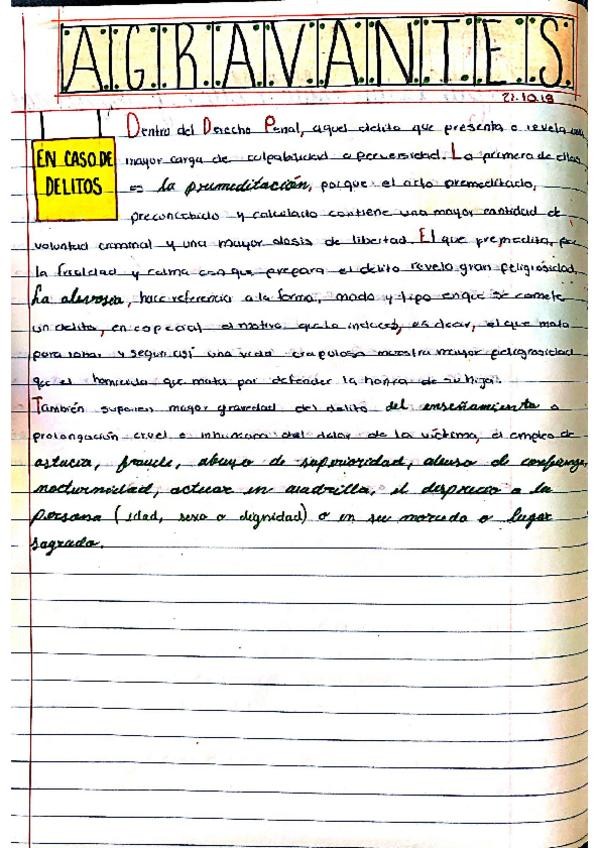 AGRAVANTES
22.10.19
EN CASO DE
DELITOS
Dentro del Derecho Penal, aquel delito que presenta o revela una
mayor carga de culpabilidad o perversidad. La primera de ellas
es la premeditación, porque el acto premeditado,
preconcebido y calculado contiene una mayor cantidad de
voluntad criminal y una mayor dosis de libertad. El que premedita, por
la frialdad y calma con que prepara el delito revela gran peligrosidad,
La alevosía, hace referencia a la forma, modo y tipo en que se comete
un delito, en especial el motivo que lo induce, es decir, el que mata
para robar y seguir así una vida crapulosa muestra mayor peligrosidad
que el homicida que mata por defender la honra de su hija.
También suponen mayor gravedad del delito del enseñamiento o
prolongación cruel e inhumana del dolor de la víctima, el empleo de
astucia, fraude, abuso de superioridad, abuso de confianza,
nocturnidad, actuar en cuadrilla, el desprecio a la
persona (edad, sexo o dignidad) o en su morada o lugar
sagrado.